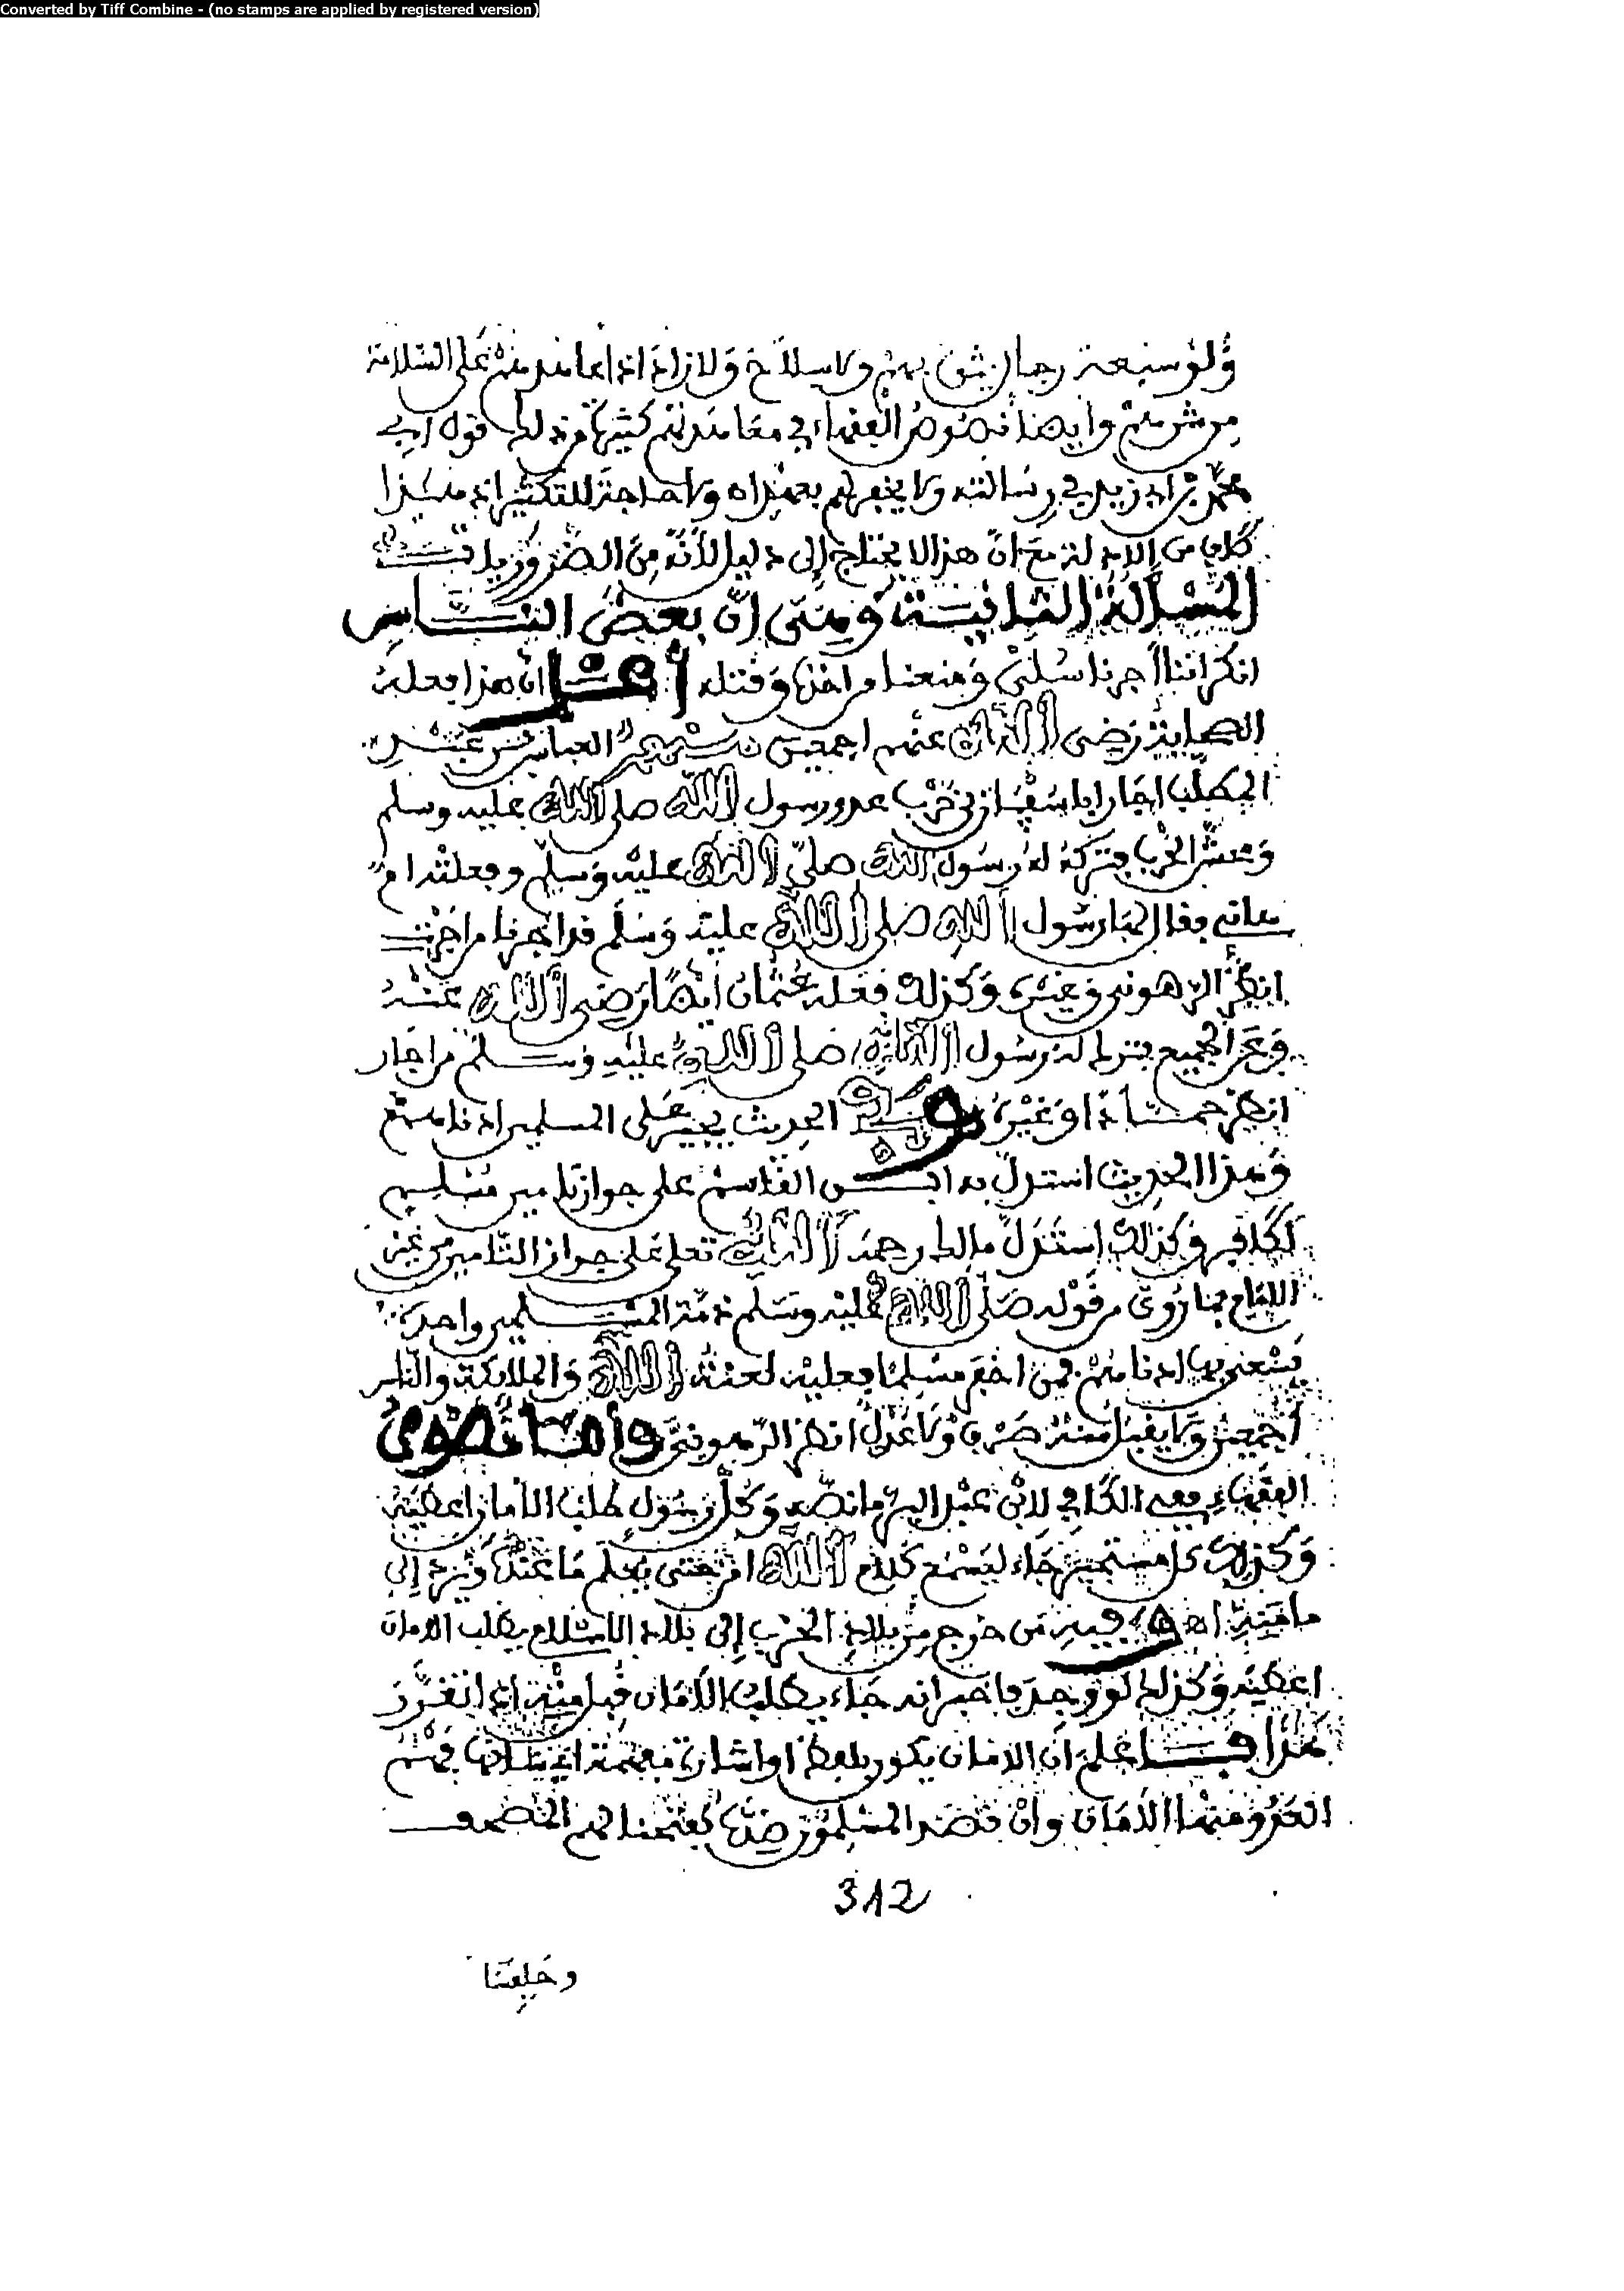 Converted by Tiff Combine - (no stamps are applied by registered version)
ولو سبعة رجال يثق بهم ولا سلاح ولا زاد اذا عاهد منهم على السلامة
من شرهم وأيضا نصوص الفقهاء في معاهدتهم كثيرة من ذلك قول ابي
محمد بن ابي زيد في رسالته ولا يخفر لهم بعهد اه ولا حاجة للتكثير اذ مثل هذا
كاف من الادلة مع ان هذا لا يحتاج إلى دليل لأنه من الضروريات
المسألة الثانية وهي ان بعض الناس
انكر اننا أجرنا سلمى ومنعنا من اخذها وقتله أعلم ان هذا فعله
الصحابة رضي الله عنهم اجمعين العباس بن عبد
المطلب اجار ابا سفيان بن حرب عدو رسول الله صلى الله عليه وسلم
الحرب فتركه له رسول الله صلى الله عليه وسلم وفعلته ام
هانئ فقال لها رسول الله صلى الله عليه وسلم قد اجرنا من اجرت
انظر الرهوني وغيره وكذلك فعله عثمان أيضا رضي الله عنه
وعن الجميع فترك له رسول الله صلى الله عليه وسلم من اجار
انظر او غيره وفي الحديث يجير على المسلمين ادناهم
وهذا الحديث استدل به ابن القاسم على جواز تامين مسلم
لكافر وكذلك استدل مالك رحمه الله تعلى على جواز التامين من غير
الامام بما روي من قوله صلى الله عليه وسلم ذمة المسلمين واحدة
يسعى بها ادناهم فمن اخفر مسلما فعليه لعنة الله والملائكة والناس
أجمعين ولا يقبل منه صرف ولا عدل انظر الرهوني وأما نصوص
الفقهاء ففي الكافي لابن عبد البر ما نصه وكل رسول طلب الأمان اعطيه
وكذلك كل مستجير جاء ليسمع كلام الله او حتى يعلم ما عندنا ويرد إلى
مامنه اه وفيه من خرج من بلاد الحرب إلى بلاد الاسلام يطلب الامان
اعطيه وكذلك لو وجد فاخبر انه جاء يطلب الأمان قبل منه اذا انفرد
هذا واعلم ان الامان يكون بلفظ او اشارة مفهمة اي شانها فهم
العدو منها الأمان وان قصد المسلمون ضدها كفتحنا لهم المصحف
312
وحلفنا